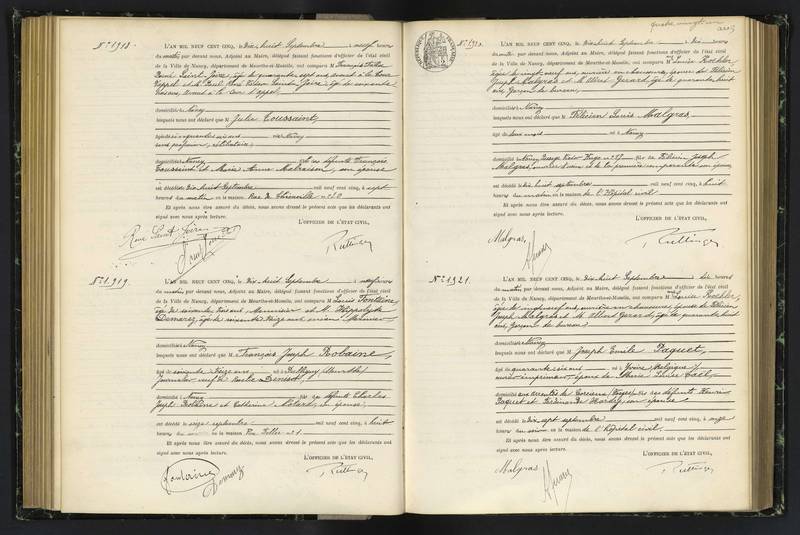 N° 1918.
L'AN MIL NEUF CENT CINQ, le Dix huit Septembre neuf heures
du matin par devant nous, Adjoint au Maire, délégué faisant fonctions d'officier de l'état civil
de la Ville de Nancy, département de Meurthe-et-Moselle, ont comparu M François
âgé de quarante sept ans, avoué à la Cour
d'appel et M. Paul René Saint Joire, âgé de
avoué à la Cour d'appel
domiciliés à Nancy
lesquels nous ont déclaré que M Julie Toussaint,
âgée de cinquante six ans née à Nancy
sans profession, célibataire,
domiciliée à Nancy fille de défunts François
Toussaint et Marie Anne son épouse
est décédée le dix huit Septembre mil neuf cent cinq, à sept
heures du matin en la maison Rue de n° 10
Et après nous être assuré du décès, nous avons dressé le présent acte que les déclarants ont
signé avec nous après lecture.
L'OFFICIER DE L'ÉTAT CIVIL,
René Saint Joire
Ruttinger
N° 1.919.
L'AN MIL NEUF CENT CINQ, le Dix huit Septembre neuf heures
du matin par devant nous, Adjoint au Maire, délégué faisant fonctions d'officier de l'état civil
de la Ville de Nancy, département de Meurthe-et-Moselle, ont comparu M Louis Fontaine,
âgé de soixante trois ans, Menuisier et M. Hippolyte
Demary, âgé de soixante treize ans, ancien Menuisier
domiciliés à Nancy
lesquels nous ont déclaré que M François Joseph Robaine,
âgé de soixante treize ans né à (Meurthe)
journalier veuf de
domicilié à Nancy fils de défunts Charles
Joseph Robaine et Catherine son épouse,
est décédé le seize septembre mil neuf cent cinq, à huit
heures du en la maison Rue n° 1
Et après nous être assuré du décès, nous avons dressé le présent acte que les déclarants ont
signé avec nous après lecture.
L'OFFICIER DE L'ÉTAT CIVIL,
Fontaine
Demary
Ruttinger
quatre vingt un
N° 1920.
L'AN MIL NEUF CENT CINQ, le Dix huit Septembre Dix heures
du matin par devant nous, Adjoint au Maire, délégué faisant fonctions d'officier de l'état civil
de la Ville de Nancy, département de Meurthe-et-Moselle, ont comparu M Louise Koehler,
âgée de vingt neuf ans, ouvrière en chaussures, épouse de Félicien
Joseph Malgras et M. Albert Gérard, âgé de quarante huit
ans, Garçon de bureau,
domiciliés à Nancy
lesquels nous ont déclaré que M Félicien Louis Malgras,
âgé de deux mois né à Nancy
domicilié à Nancy, Passage Victor Hugo n° 27 fils de Félicien Joseph
Malgras, et de la première comparante son épouse,
est décédé le dix huit septembre mil neuf cent cinq, à huit
heures du matin en la maison de l'Hôpital civil
Et après nous être assuré du décès, nous avons dressé le présent acte que les déclarants ont
signé avec nous après lecture.
L'OFFICIER DE L'ÉTAT CIVIL,
Malgras
Ruttinger
N° 1.921.
L'AN MIL NEUF CENT CINQ, le Dix huit Septembre dix heures
du matin par devant nous, Adjoint au Maire, délégué faisant fonctions d'officier de l'état civil
de la Ville de Nancy, département de Meurthe-et-Moselle, ont comparu M Louise Koehler,
âgée de vingt neuf ans, ouvrière en chaussures, épouse de Félicien
Joseph Malgras et M. Albert Gérard, âgé de quarante huit
ans, Garçon de bureau,
domiciliés à Nancy
lesquels nous ont déclaré que M Joseph Emile Paquet,
âgé de quarante six ans né à Yvoire (Belgique),
ouvrier imprimeur, époux de Marie Louise
domicilié à (Vosges) fils des défunts Henri
Paquet et de Hardy, son épouse
est décédé le Dix sept septembre mil neuf cent cinq, à onze
heures du soir en la maison de l'Hôpital civil.
Et après nous être assuré du décès, nous avons dressé le présent acte que les déclarants ont
signé avec nous après lecture.
L'OFFICIER DE L'ÉTAT CIVIL,
Malgras
Ruttinger